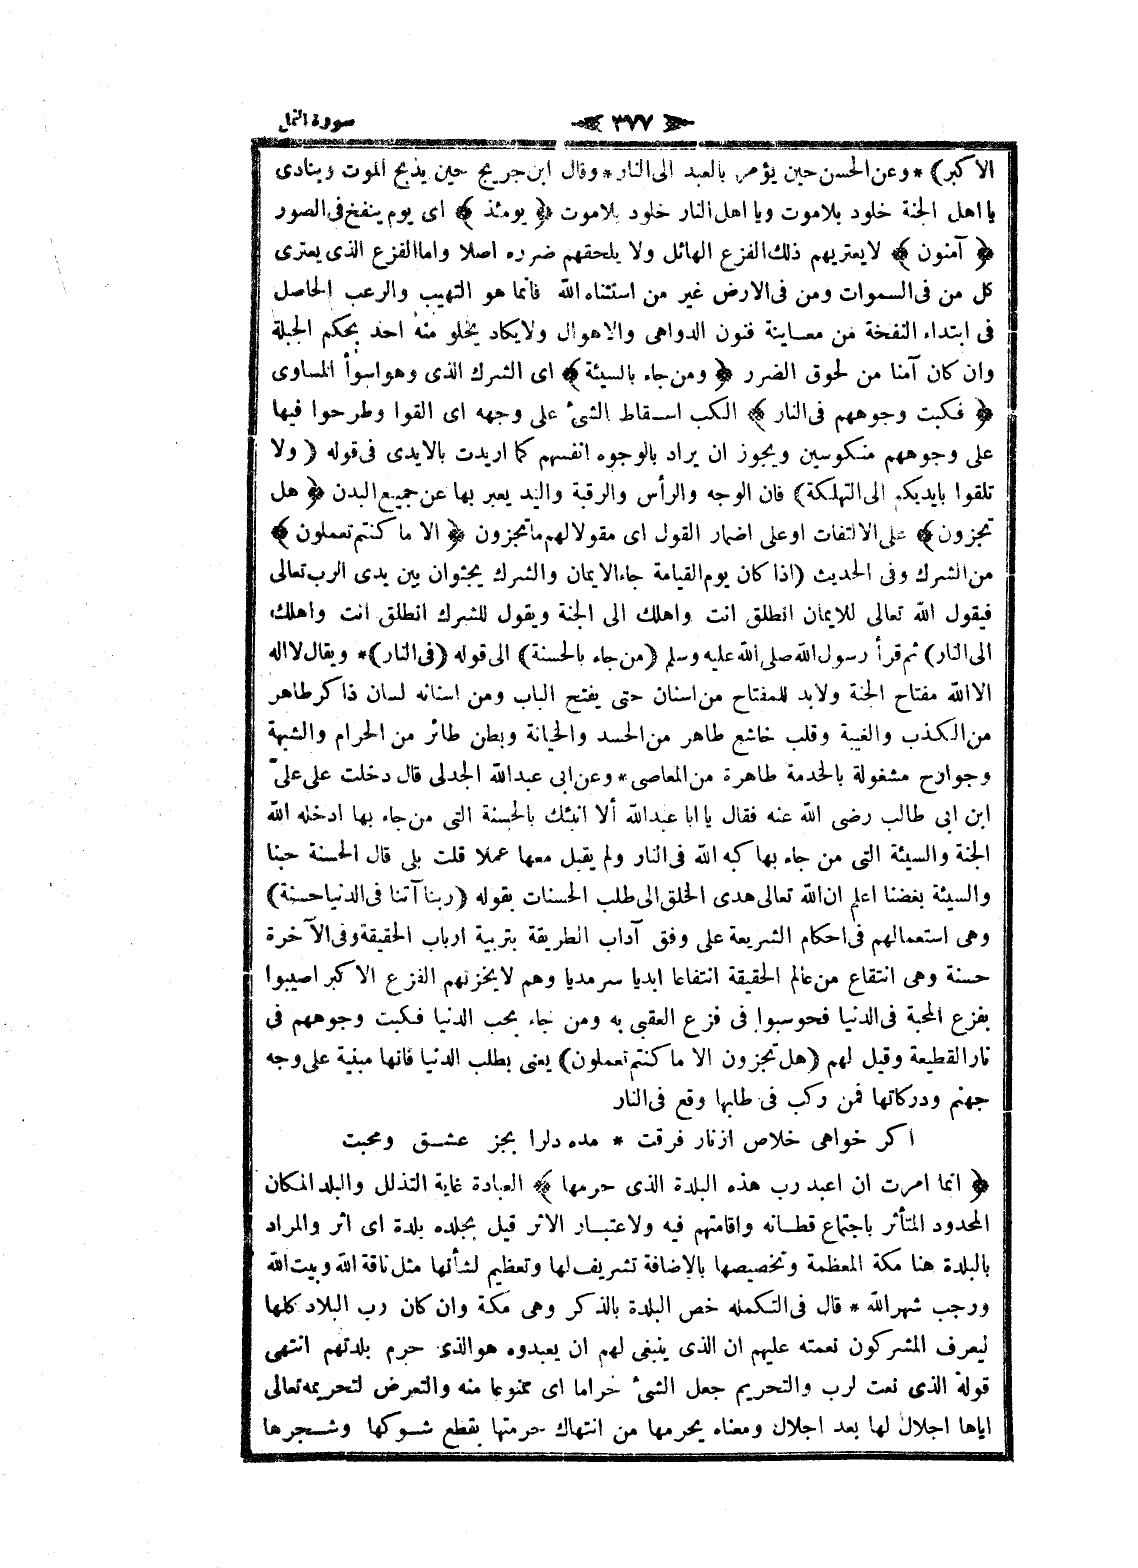 سورة النمل
٣٧٧
الاكبر) * وعن الحسن حين يؤمر بالعبد الى النار * وقال ابن جريج حين يذبح الموت وينادى
يا اهل الجنة خلود بلاموت ويا اهل النار خلود بلاموت ﴿ يومئذ ﴾ اى يوم ينفخ فى الصور
﴿ آمنون ﴾ لايعتريهم ذلك الفزع الهائل ولا يلحقهم ضرره اصلا واما الفزع الذى يعترى
كل من فى السموات ومن فى الارض غير من استثناه الله فانما هو التهيب والرعب الحاصل
فى ابتداء النفخة من معاينة فنون الدواهى والاهوال ولايكاد يخلو منه احد بحكم الجبلة
وان كان آمنا من لحوق الضرر ﴿ ومن جاء بالسيئة ﴾ اى الشرك الذى وهو اسوأ المساوى
﴿ فكبت وجوههم فى النار ﴾ الكب اسقاط الشئ على وجهه اى القوا وطرحوا فيها
على وجوههم منكوسين ويجوز ان يراد بالوجوه انفسهم كما اريدت بالايدى فى قوله ( ولا
تلقوا بايديكم الى التهلكة) فان الوجه والرأس والرقبة واليد يعبر بها عن جميع البدن ﴿ هل
تجزون ﴾ على الالتفات او على اضمار القول اى مقولا لهم ماتجزون ﴿ الا ما كنتم تعملون ﴾
من الشرك وفى الحديث (اذا كان يوم القيامة جاء الايمان والشرك يجثوان بين يدى الرب تعالى
فيقول الله تعالى للايمان انطلق انت واهلك الى الجنة ويقول للشرك انطلق انت واهلك
الى النار) ثم قرأ رسول الله صلى الله عليه وسلم (من جاء بالحسنة) الى قوله (فى النار) * ويقال لااله
الاالله مفتاح الجنة ولابد للمفتاح من اسنان حتى يفتح الباب ومن اسنانه لسان ذاكر طاهر
من الكذب والغيبة وقلب خاشع طاهر من الحسد والخيانة وبطن طائر من الحرام والشبهة
وجوارح مشغولة بالخدمة طاهرة من المعاصى * وعن ابى عبدالله الجدلى قال دخلت على علىّ
ابن ابى طالب رضى الله عنه فقال يا ابا عبدالله ألا انبئك بالحسنة التى من جاء بها ادخله الله
الجنة والسيئة التى من جاء بها كبه الله فى النار ولم يقبل معها عملا قلت بلى قال الحسنة حبنا
والسيئة بغضنا اعلم ان الله تعالى هدى الخلق الى طلب الحسنات بقوله (ربنا آتنا فى الدنيا حسنة)
وهى استعمالهم فى احكام الشريعة على وفق آداب الطريقة بتربية ارباب الحقيقة وفى الآخرة
حسنة وهى انتفاع من عالم الحقيقة انتفاعا ابديا سرمديا وهم لايحزنهم الفزع الاكبر اصيبوا
بفزع المحبة فى الدنيا فحوسبوا فى فزع العقبى به ومن جاء بحب الدنيا فكبت وجوههم فى
نار القطيعة وقيل لهم (هل تجزون الا ما كنتم تعملون) يعنى بطلب الدنيا فانها مبنية على وجه
جهنم ودركاتها فمن ركب فى طلبها وقع فى النار
اكر خواهى خلاص از نار فرقت * مده دلرا بجز عشق ومحبت
﴿ انما امرت ان اعبد رب هذه البلدة الذى حرمها ﴾ العبادة غاية التذلل والبلد المكان
المحدود المتأثر باجتماع قطانه واقامتهم فيه ولاعتبار الاثر قيل بجلده بلدة اى اثر والمراد
بالبلدة هنا مكة المعظمة وتخصيصها بالاضافة تشريف لها وتعظيم لشأنها مثل ناقة الله وبيت الله
ورجب شهر الله * قال فى التكمله خص البلدة بالذكر وهى مكة وان كان رب البلاد كلها
ليعرف المشركون نعمته عليهم ان الذى ينبغى لهم ان يعبدوه هو الذى حرم بلدتهم انتهى
قوله الذى نعت لرب والتحريم جعل الشئ حراما اى ممنوعا منه والتعرض لتحريمه تعالى
اياها اجلال لها بعد اجلال ومعناه يحرمها من انتهاك حرمتها بقطع شوكها وشجرها